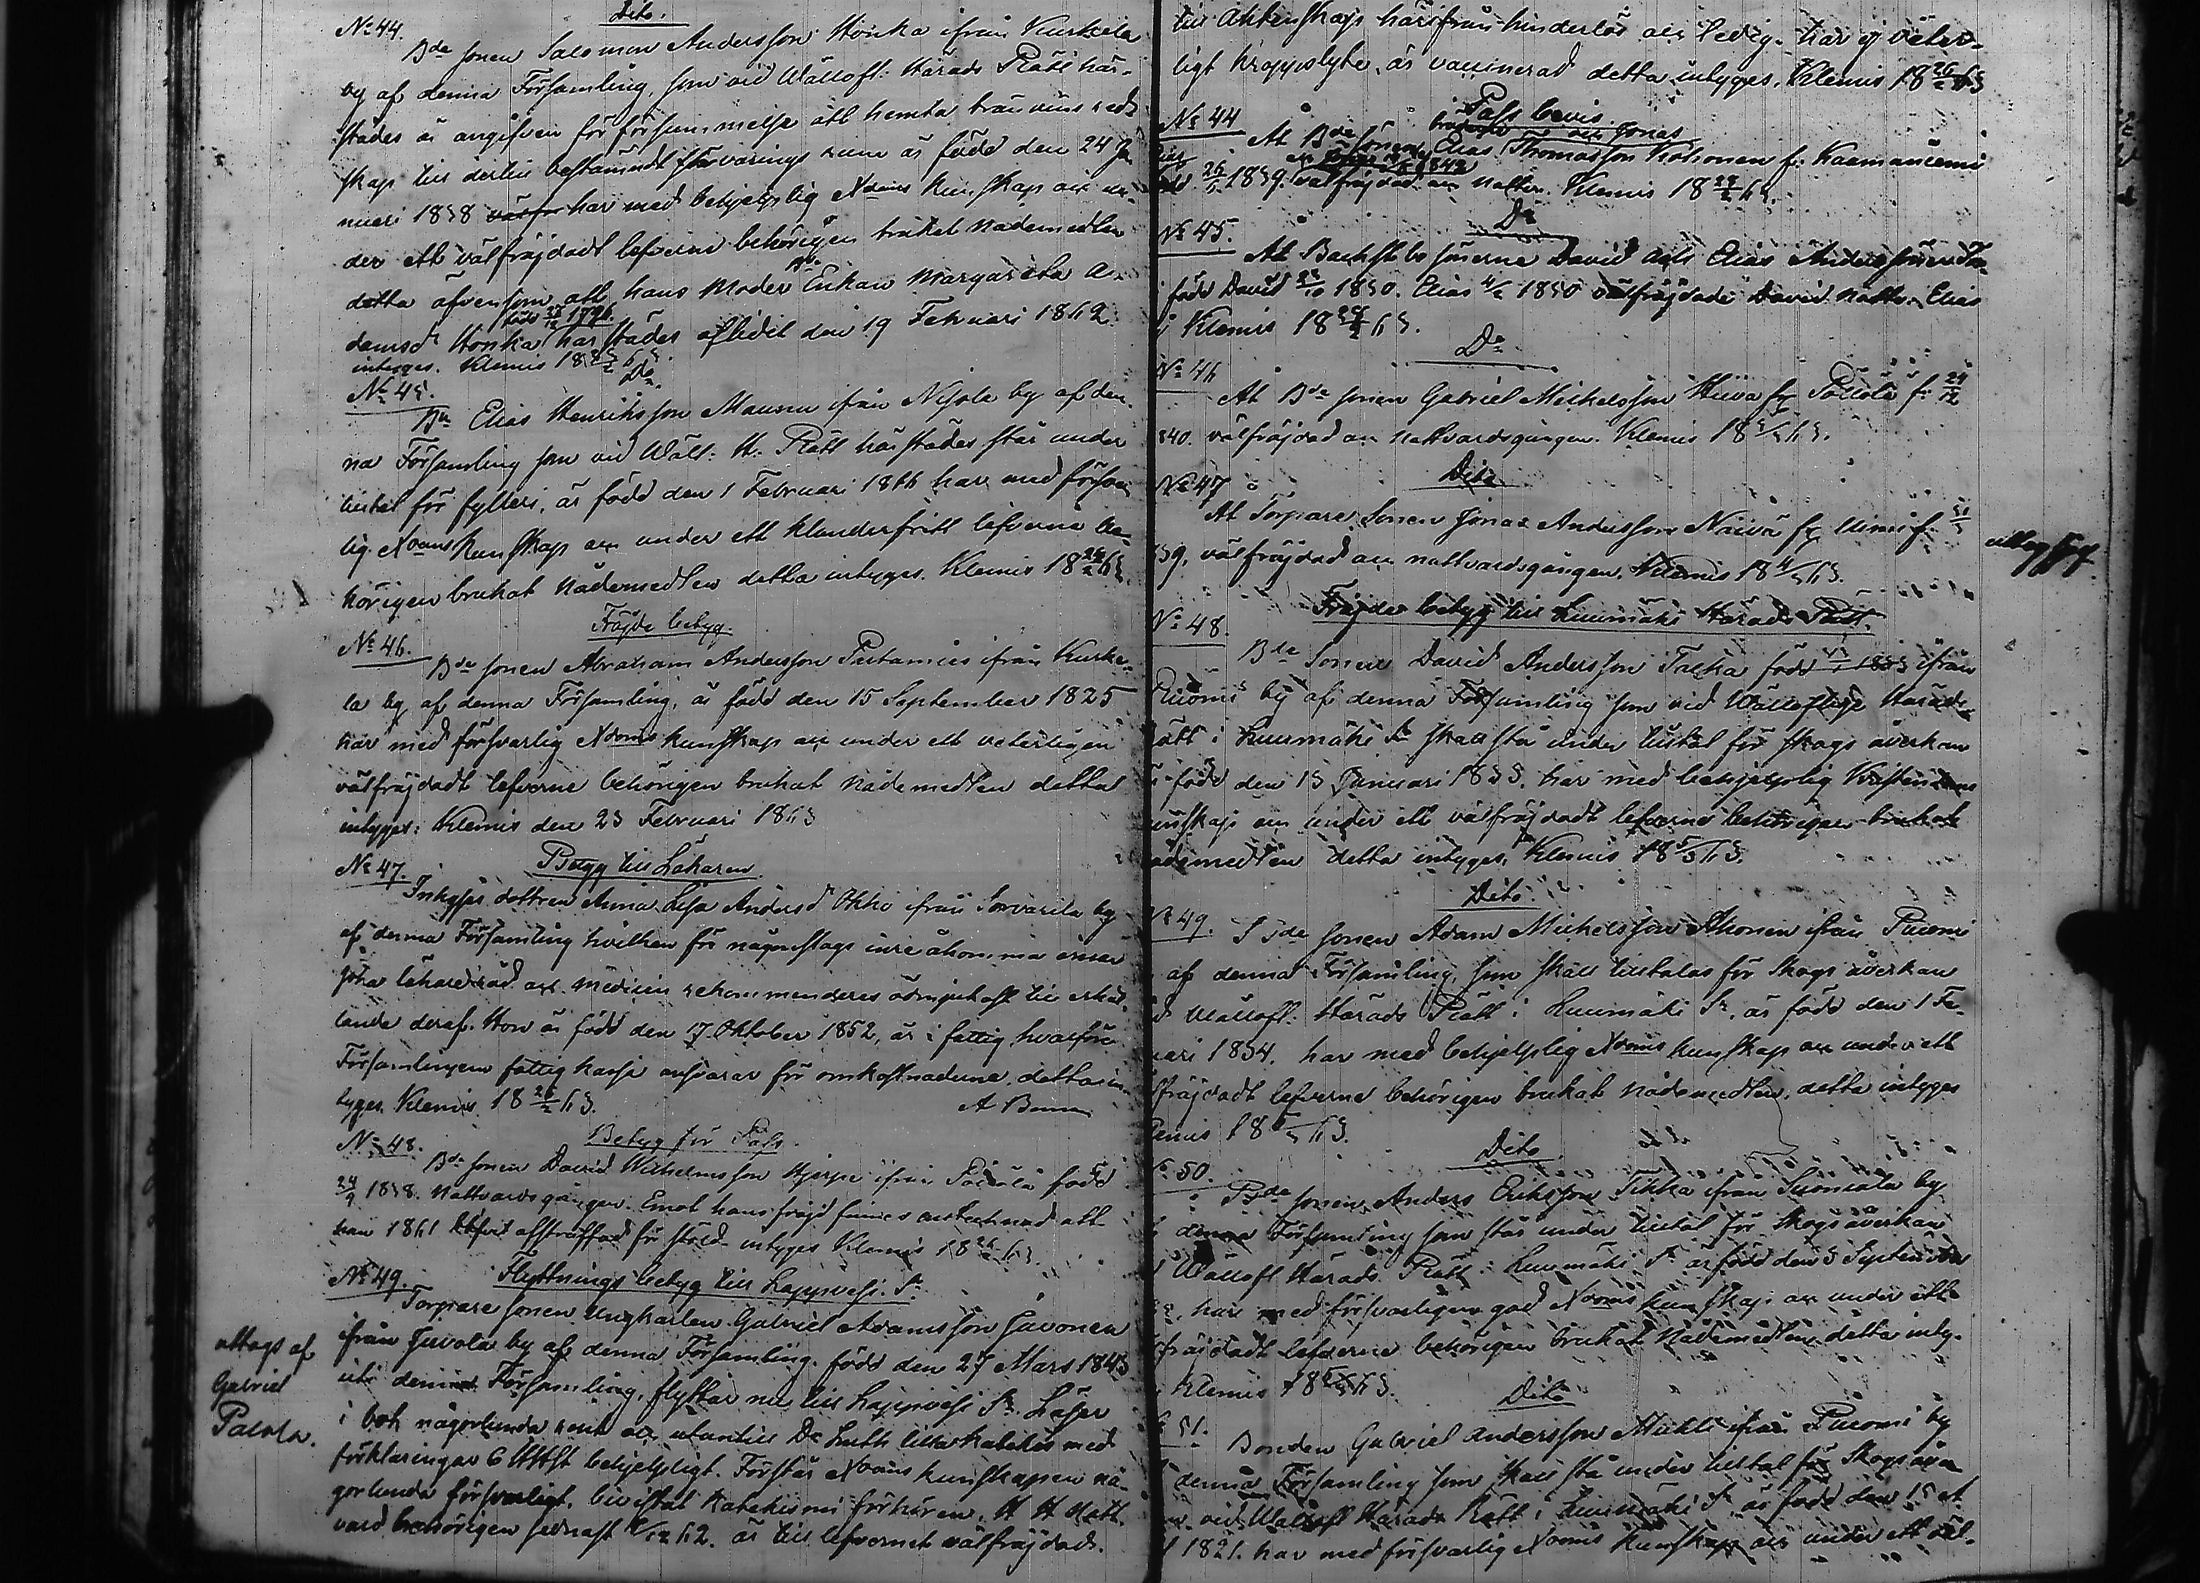 Dito.
No 44.
Bde Sonen Salomon Andersson Honka ifrån Kurkela
by af denna Församling, som vid Wällofl. Härads Rätt här-
städes är angifven för försummelse att hemta bränvins red-
skap till dertill bestämdt förvarings rum är född den 24 Ja
nuari 1838 har med behjelplig Xdoms kunskap och un-
der ett välfräjdadt lefverne behörigen brukat nådemedlen
detta äfvensom att hans Moder Enkan Margareta A-
född 1796
damsdr Honka härstädes aflidit den 19 Februari 1862
intyges. Klemis 18 63.
No 45. Do
Bde Elias Henriksson Maunu ifrån Nisola by af den-
na Församling som vid Wäll. H. Rätt härstädes står under
tiltal för fylleri, är född den 1 Februari 18 har med försvar
lig Xdoms kunskap och under ett klanderfritt lefverne be-
hörigen brukat nådemedlen detta intyges. Klemis 18 63
Fräjde betyg.
No 46.
Bde Sonen Abraham Andersson Partanies ifrån Kurke-
la by af denna Församling, är född den 15 September 1825
har med försvarlig Xdoms kunskap och under ett veterligen
välfräjdadt lefverne behörigen brukat nådemedlen detta
intyges: Klemis den 23 Februari 1863
No 47. Betyg till Läkaren
Inhyses dottren Anna Lisa Andersdr Okko ifrån Sorvarila by
af denna Församling hvilken för någre slags inre åkomma ernar
söka läkareråd och medicin rekommenderes ödmjukast till erhål-
lande deraf. Hon är född den 17 Oktober 1852, är i fattig, hvarföre
Församlingens fattig kassa ansvarar för omkostnaderne, detta in-
tyges. Klemis 18 26/2 63.
No 48. Betyg för Pass.
Bde Sonen David Wilhelmsson Hjerpe ifrån född
24/9 1838. Nattvardsgången. Emot hans fräjd finnes antecknad att
han 1861 blifvit afstraffad för stöld intyges Klemis 18 26/2 63.
No 49. Flyttnings betyg till Lappvesi Sn
Torpare sonen Ungkarlen Gabriel Adamsson Javonen
ifrån Juvola by af denna Församling, född den 27 Mars 1843
uti denna Församling, flyttar nu till Lappvesi Sn. Läser
i bok någorlunda rent och utantill Dr Luth. lilla katekes med
förklaringar 6 behjelpligt. Förstår Xdoms kunskapen nå-
gorlunda försvarligt, bivistat katekismi förhören, H. H. Natt-
vard behörigen sednast 62. är till lefvernet välfräjdad.
uttogs af
Gabriel
Pakola.
till Äktenskap härifrån hinderlös och ledig. har ej veter-
ligt kroppslyte, är vaccinerad detta intyges. Klemis 18 26/2 63
Pass bevis.
No 44 och Jonas
At Bde Sönerne Elias Thomasson Kotionen f. Kaamanniemi
1839. välfräjdad och Nattv. Klemis 18 63.
No 45. Do
At Backstbo sönerne David och Elias Anderssöner
född David 1830. Elias 1850 välfräjdade David nattv. Elias
ej Klemis 18 63.
No 46 Do
At Bde Sonen Gabriel Mickelsson Hiiva fr. f. 24/12
840. välfräjdad och nattvardsgången. Klemis 18 63.
No 47 Dito
At Torpare Sonen Jonas Andersson Näivä fr. f.
39, välfräjdad och nattvardsgången. Klemis 18 4/3 63.
Fräjde betyg till Luumäki Härads Rätt.
No 48.
Bde Sonen David Andersson Taikka född 1833 ifrån
by af denna Församling som vid Wälloflige Härads
Rätt i Luumäki Sn skall stå under tiltal för skogs åverkan
är född den 13 Januari 1833. har med behjelplig Kristendoms
unskap och under ett välfräjdadt lefverne behörigen brukat
ådemedlen detta intyges, Klemis 18 5/3 63.
Dito
No 49.
Bde Sonen Adam Mickelsson Ahonen ifrån
af denna Församling, som skall tilltalas för skogs åverkan
d Wällofl. Härads Rätt i Luumäki Sn, är född den 1 Fe-
uari 1834. har med behjelplig Xdoms kunskap och under ett
fräjdadt lefverne behörigen brukat nådemedlen, detta intyges
lemis 18 63.
Dito
50.
Bde Sonen Anders Eriksson Tikka ifrån Suomala by
denna Församling som står under tiltal för skogsåverkan
Wällofl. Härads Rätt i Luumäki Sn är född den 3 September
har med försvarligen god Xdoms kunskap och under ett
fräjdadt lefverne behörigen brukat Nådemedlen, detta inty-
Klemis 18 63.
Dito
51.
Bonden Gabriel Andersson Mukli ifrån by
denna Församling som skall stå under tiltal för Skogsåver
vid Wällofl Härads Rätt i Luumäki Sn är född den 15
1821. har med försvarlig Xdoms kunskap och under ett väl-